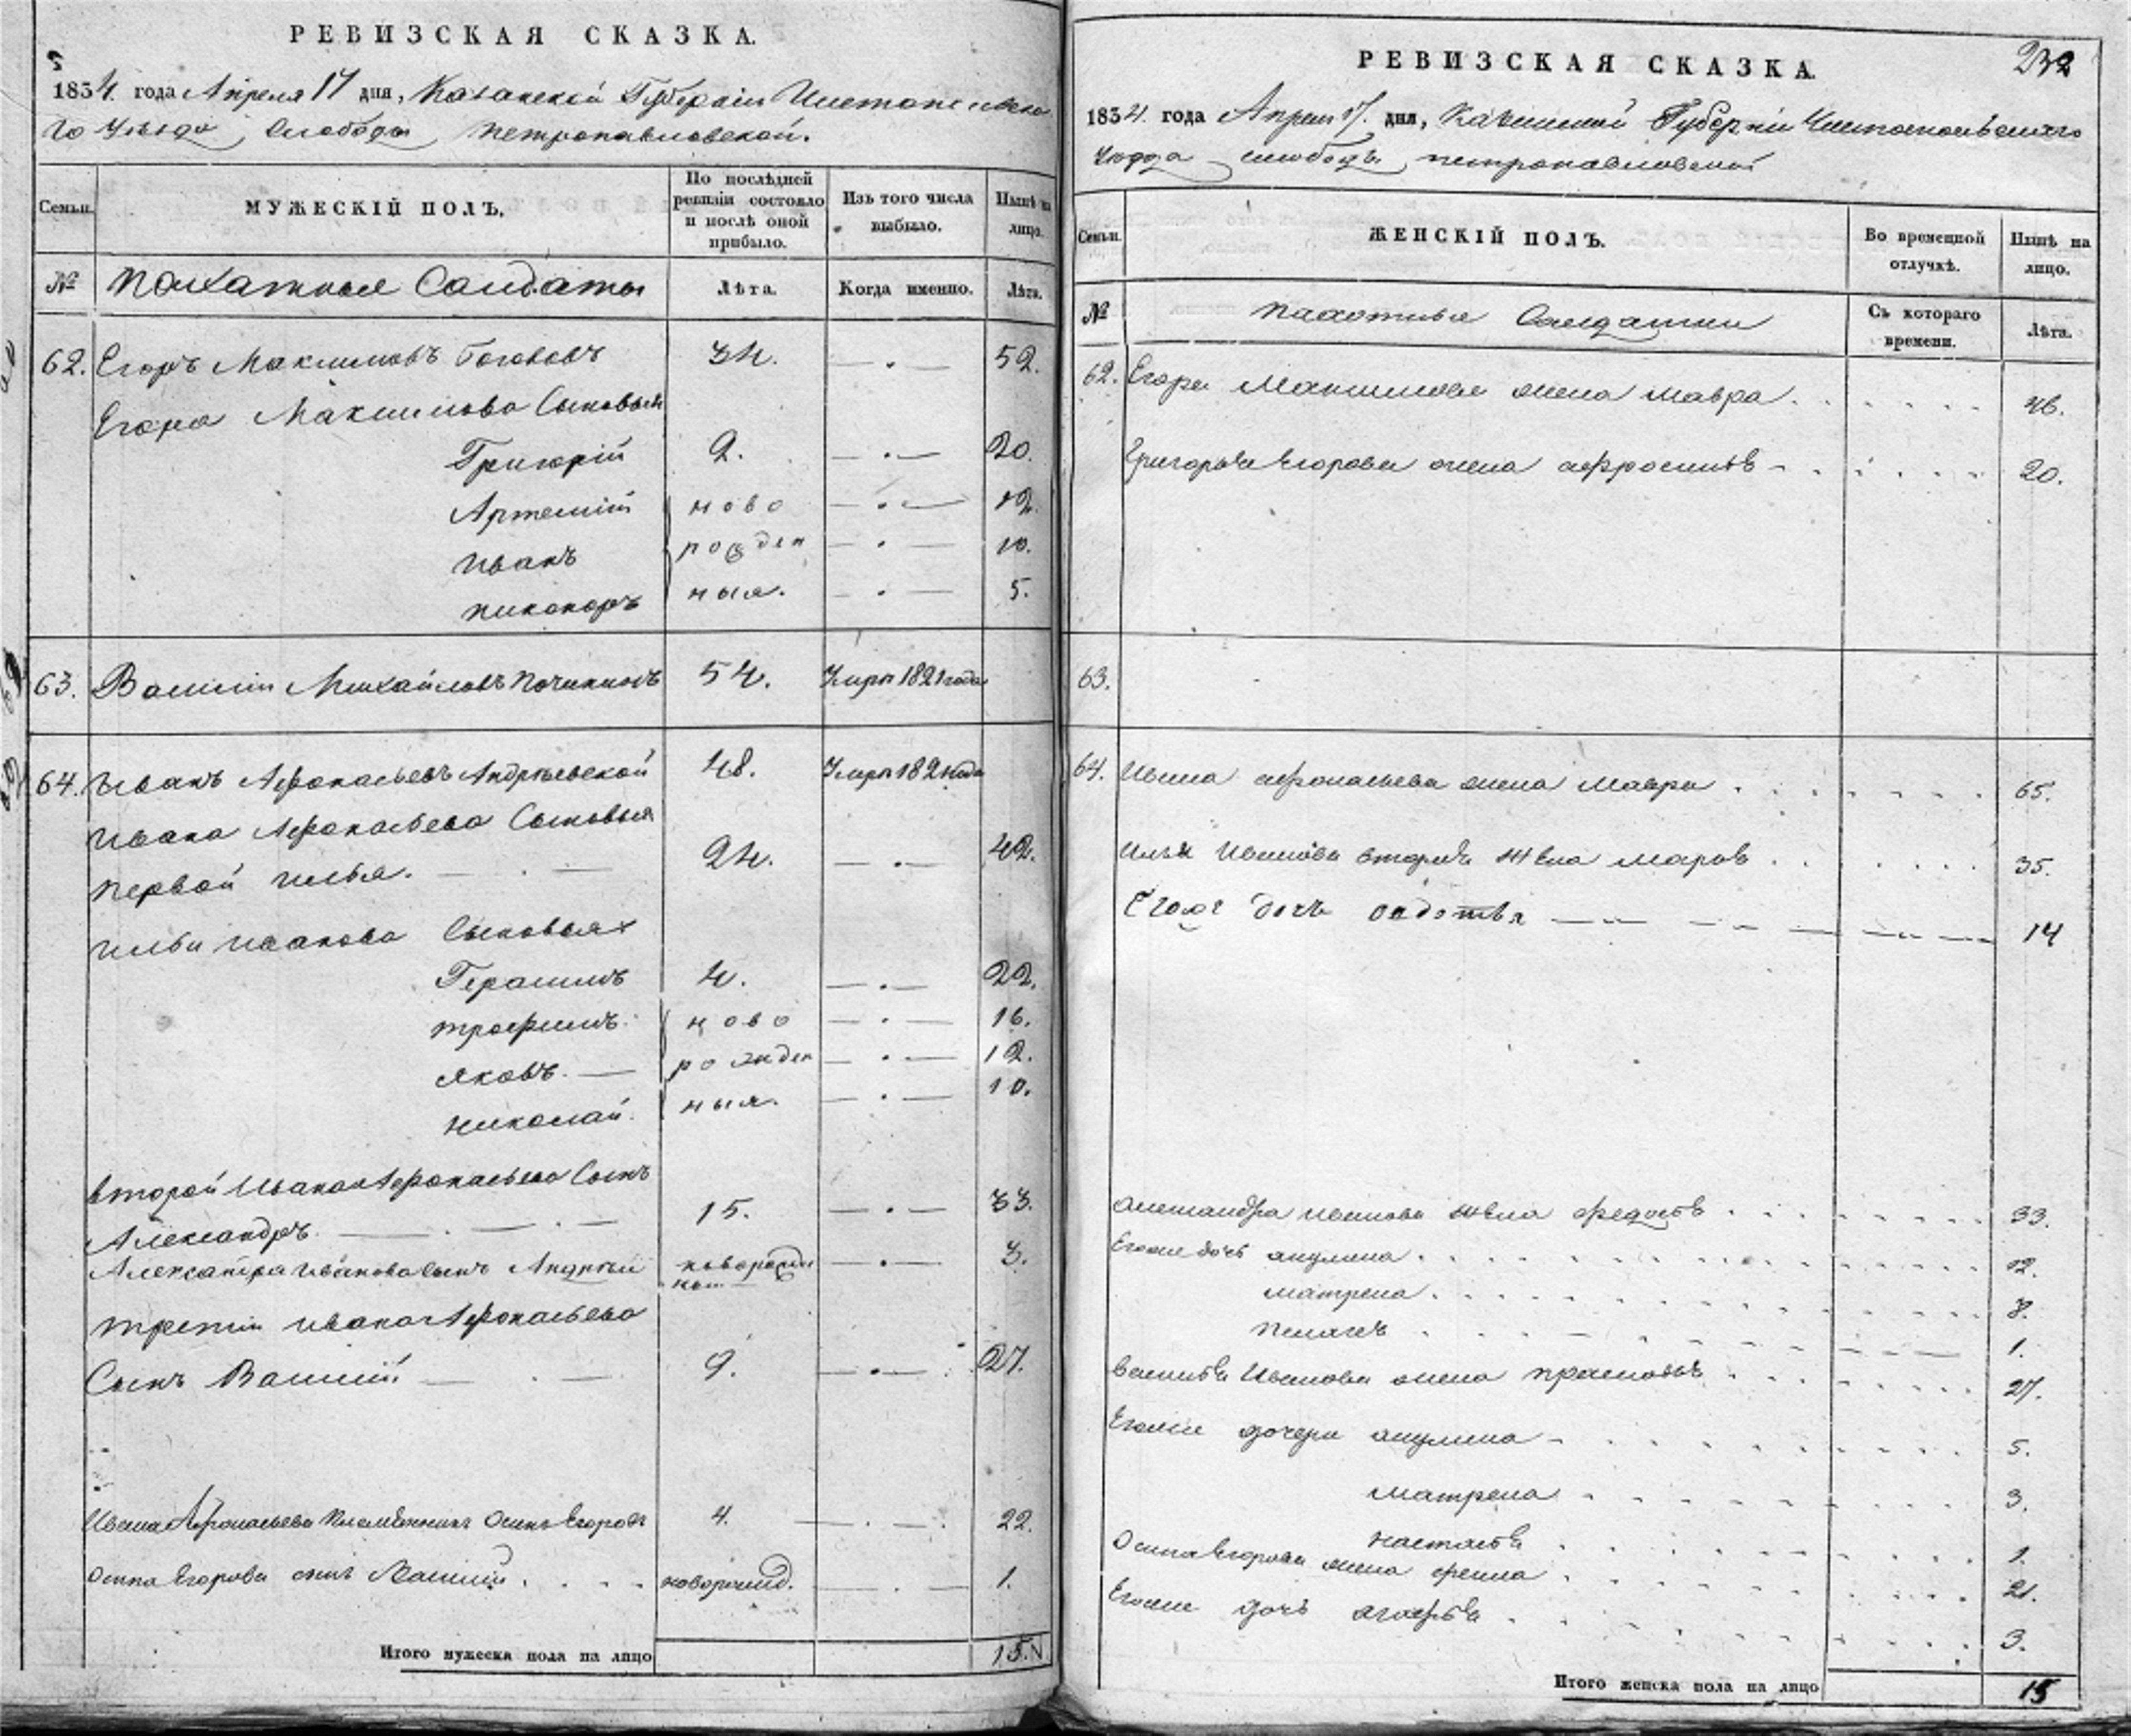 РЕВИЗСКАЯ СКАЗКА.
1834. года Апреля 17 дня, Казанской Губерніи Чистопольска
го Уѣзда, Слободы Петропавловской.
Семьи.
МУЖЕСКІЙ ПОЛЪ.
По послѣдней ревизіи состояло и послѣ оной прибыло.
Изъ того числа выбыло.
Нынѣ на лицо.
№
Пахатныя Солдаты
Лѣта.
Когда именно.
Лѣта.
62. Егоръ Максимовъ 34. — 52.
Егора Максимова Сыновья
Григорій 2. — 20.
Артемій ново — 12.
Иванъ рожден — 10.
Никаноръ ныя. — 5.
63. Василій Михайловъ Починкинъ 54. Умръ 1821 года
64. Иванъ Афонасьевъ Андреевской 48. Умръ 182 года
Ивана Афонасьева Сыновья
Первой Илья. 24. — 42.
Ильи Иванова Сыновья
Герасимъ 4. — 22.
Трофимъ. ново — 16.
Яковъ. — рожден — 12.
Николай. ныя. — 10.
Второй Ивана Афонасьева Сынъ
Александръ 15. — 33.
Александра Иванова сынъ Андрей новорожден ной — 3.
Третій Ивана Афонасьева
Сынъ Василій — 9. — 27.
Ивана Афонасьева Племянникъ Осипъ Егоровъ 4. — 22.
Осипа Егорова сынъ Василій новорожд. — 1.
Итого мужеска пола на лицо 15.
232
РЕВИЗСКАЯ СКАЗКА.
1834. года Апреля 17. дня, Казанской Губерніи Чистопольскаго
Уезда слободы Петропавловской
Семьи.
ЖЕНСКІЙ ПОЛЪ.
Во временной отлучкѣ.
Нынѣ на лицо.
№
Пахотныя Солдатки
Съ котораго времени.
Лѣта.
62. Егора Максимова жена Мавра 46.
Григорья Егорова жена Афросинья 20.
63.
64. Ивана Афонасьева жена Мавра 65.
Ильи Иванова вторая жена Марфа 35.
Егоже дочь Федотья 14
Александра Иванова жена Федосья 33.
Егоже дочь Акулина 12.
Матрена 8.
Пелагея 1.
Василья Иванова жена Прасковья 27.
Егоже дочери Акулина 5.
Матрена 3.
Настасья 1.
Осипа Егорова жена Фекла 21.
Егоже дочь Агафья 3.
Итого женска пола на лицо 15